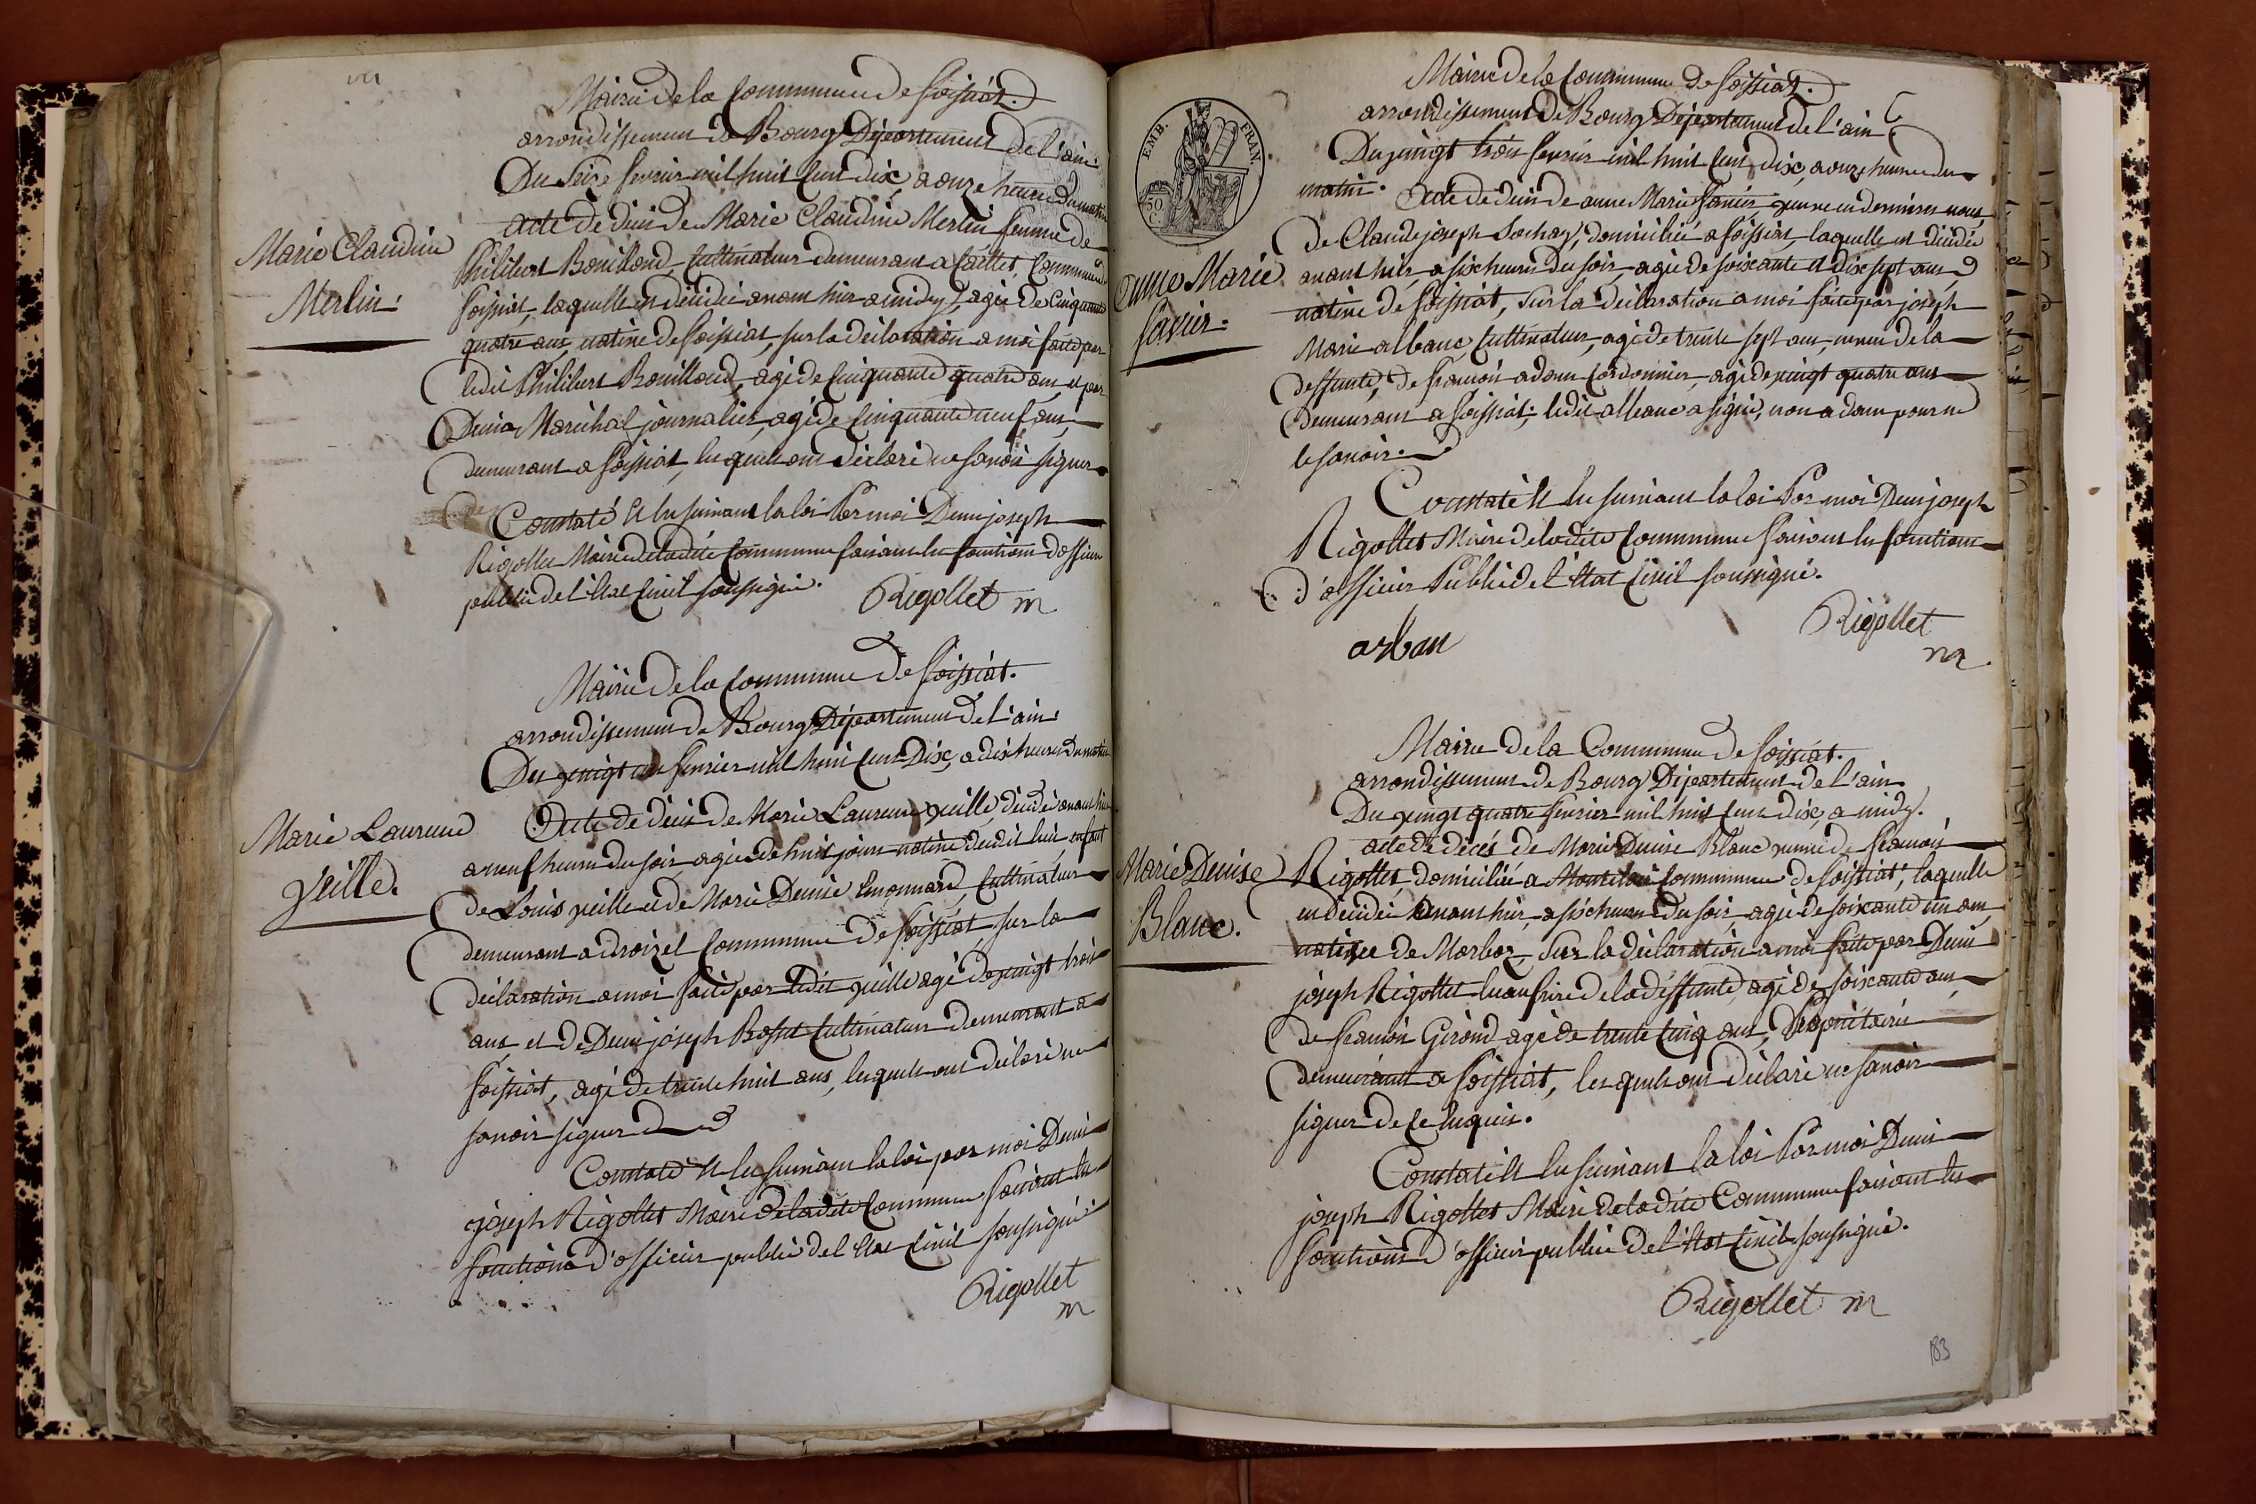 Mairie de la Commune de foissiat.
arrondissement de Bourg Département de l'ain.
Du seize fevrier mil huit cent dix, a onze heures du matin
acte de décès de Marie Claudine Merlin femme de
Marie Claudine
Merlin.
Philibert Bouilloud, cultivateur demeurant a Caillet, Commune de
foissiat, laquelle est décédée avant hier a midy, agée de cinquante
quatre ans, native de foissiat, sur la déclaration a moi faite par
ledit Philibert Bouilloud, agé de cinquante quatre ans, et par
Denis Maréchal journalier, agé de cinquante neuf ans,
demeurant a foissiat, lesquels ont déclaré ne savoir signer
Constaté et lu suivant la loi Par moi Denis joseph
Rigollet Maire de la dite Commune faisant les fonctions d'officier
public de l'état civil soussigné.
Rigollet m
Mairie de la Commune de foissiat.
arrondissement de Bourg Département de l'ain.
Du vingt un fevrier mil huit cent Dix, a dix heures du matin
Marie Laurence
Veille.
Acte de décès de Marie Laurence veille, décédée avant hier
a neuf heures du soir, agée de huit jours native dudit lieu enfant
de Louis veille et de Marie Denise Emonnard, cultivateur
demeurant a droizel Commune de foissiat sur la
déclaration a moi faite par ledit veille agé de vingt trois
ans et de Denis joseph Bosset cultivateur demeurant a
foissiat, agé de trente huit ans, lesquels ont déclaré ne
savoir signer
Constaté et lu suivant la loi par moi Denis
joseph Rigollet Maire de la dite Commune faisant les
fonctions d'officier public de l'état civil soussigné.
Rigollet
m
EMB. FRAN.
50 C.
Mairie de la Commune de foissiat.
arrondissement de Bourg Département de l'ain
Du vingt trois fevrier mil huit cent dix, a onze heures du
matin. Acte de décès de anne Marie favier, veuve en dernieres noces
anne Marie
favier.
de Claude joseph Sochay, domiciliée a foissiat, laquelle est décédée
avant hier, a six heures du soir, agée de soixante et dix sept ans,
native de foissiat, sur la déclaration a moi faite par joseph
Marie albanc, cultivateur, agé de trente sept ans, neveu de la
deffunte, de francois adam Cordonnier, agé de vingt quatre ans
demeurant a foissiat; ledit albanc a signé, non adam pour ne
le savoir.
Constaté et lu suivant la loi Par moi Denis joseph
Rigollet Maire de la dite Commune faisant les fonctions
d'officier Public de l'état civil soussigné.
arban
Rigollet
m
Mairie de la Commune de foissiat.
arrondissement de Bourg Département de l'ain
Du vingt quatre fevrier mil huit cent dix, a midy.
acte de décès de Marie Denise Blanc veuve de francois
Marie Denise
Blanc.
Rigollet, domiciliée a Commune de foissiat, laquelle
est décédée avant hier, a six heures du soir, agée de soixante un ans,
native de Marboz, sur la déclaration a moi faite par Denis
joseph Rigollet beaufrere de la deffunte, agé de soixante ans,
de francois Girand agé de trente cinq ans, Propriétaires
demeurant a foissiat, lesquels ont déclaré ne savoir
signer de ce requis.
Constaté et lu suivant la loi Par moi Denis
joseph Rigollet Maire de la dite Commune faisant les
fonctions d'officier public de l'état civil soussigné.
Rigollet m
183